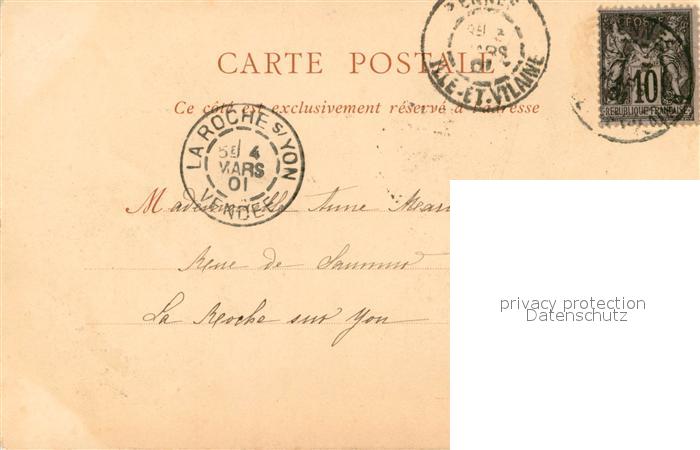 RENNES
MARS
01
ILLE-ET-VILAINE
POSTE
10
REPUBLIQUE FRANÇAISE
CARTE POSTALE
Ce côté est exclusivement réservé à l'adresse
LA ROCHE S/YON
5E 4
MARS
01
VENDÉE
Mademoiselle Anne Mari
Rue de Saumur
La Roche sur Yon
privacy protection
Datenschutz